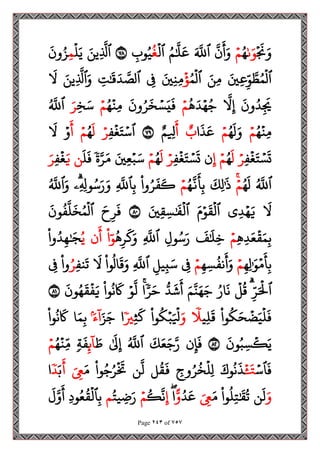 وَنَجْوَىٰهُمْ وَأَنَّ ٱللَّهَ عَلَّٰمُ ٱلْغُيُوبِ ٧٨ ٱلَّذِينَ يَلْمِزُونَ
ٱلْمُطَّوِّعِينَ مِنَ ٱلْمُؤْمِنِينَ فِى ٱلصَّدَقَٰتِ وَٱلَّذِينَ لَا
يَجِدُونَ إِلَّا جُهْدَهُمْ فَيَسْخَرُونَ مِنْهُمْ سَخِرَ ٱللَّهُ
مِنْهُمْ وَلَهُمْ عَذَابٌ أَلِيمٌ ٧٩ ٱسْتَغْفِرْ لَهُمْ أَوْ لَا
تَسْتَغْفِرْ لَهُمْ إِن تَسْتَغْفِرْ لَهُمْ سَبْعِينَ مَرَّةً فَلَن يَغْفِرَ
ٱللَّهُ لَهُمْ ۚ ذَٰلِكَ بِأَنَّهُمْ كَفَرُوا۟ بِٱللَّهِ وَرَسُولِهِۦ ۗ وَٱللَّهُ
لَا يَهْدِى ٱلْقَوْمَ ٱلْفَٰسِقِينَ ٨٠ فَرِحَ ٱلْمُخَلَّفُونَ
بِمَقْعَدِهِمْ خِلَٰفَ رَسُولِ ٱللَّهِ وَكَرِهُوٓا۟ أَن يُجَٰهِدُوا۟
بِأَمْوَٰلِهِمْ وَأَنفُسِهِمْ فِى سَبِيلِ ٱللَّهِ وَقَالُوا۟ لَا تَنفِرُوا۟ فِى
ٱلْحَرِّ ۗ قُلْ نَارُ جَهَنَّمَ أَشَدُّ حَرًّا ۚ لَّوْ كَانُوا۟ يَفْقَهُونَ ٨١
فَلْيَضْحَكُوا۟ قَلِيلًا وَلْيَبْكُوا۟ كَثِيرًا جَزَآءًۢ بِمَا كَانُوا۟
يَكْسِبُونَ ٨٢ فَإِن رَّجَعَكَ ٱللَّهُ إِلَىٰ طَآئِفَةٍ مِّنْهُمْ
فَٱسْتَـْٔذَنُوكَ لِلْخُرُوجِ فَقُل لَّن تَخْرُجُوا۟ مَعِىَ أَبَدًا
وَلَن تُقَٰتِلُوا۟ مَعِىَ عَدُوًّا ۖ إِنَّكُمْ رَضِيتُم بِٱلْقُعُودِ أَوَّلَ
Page ٢٤٣ of ٧٥٧